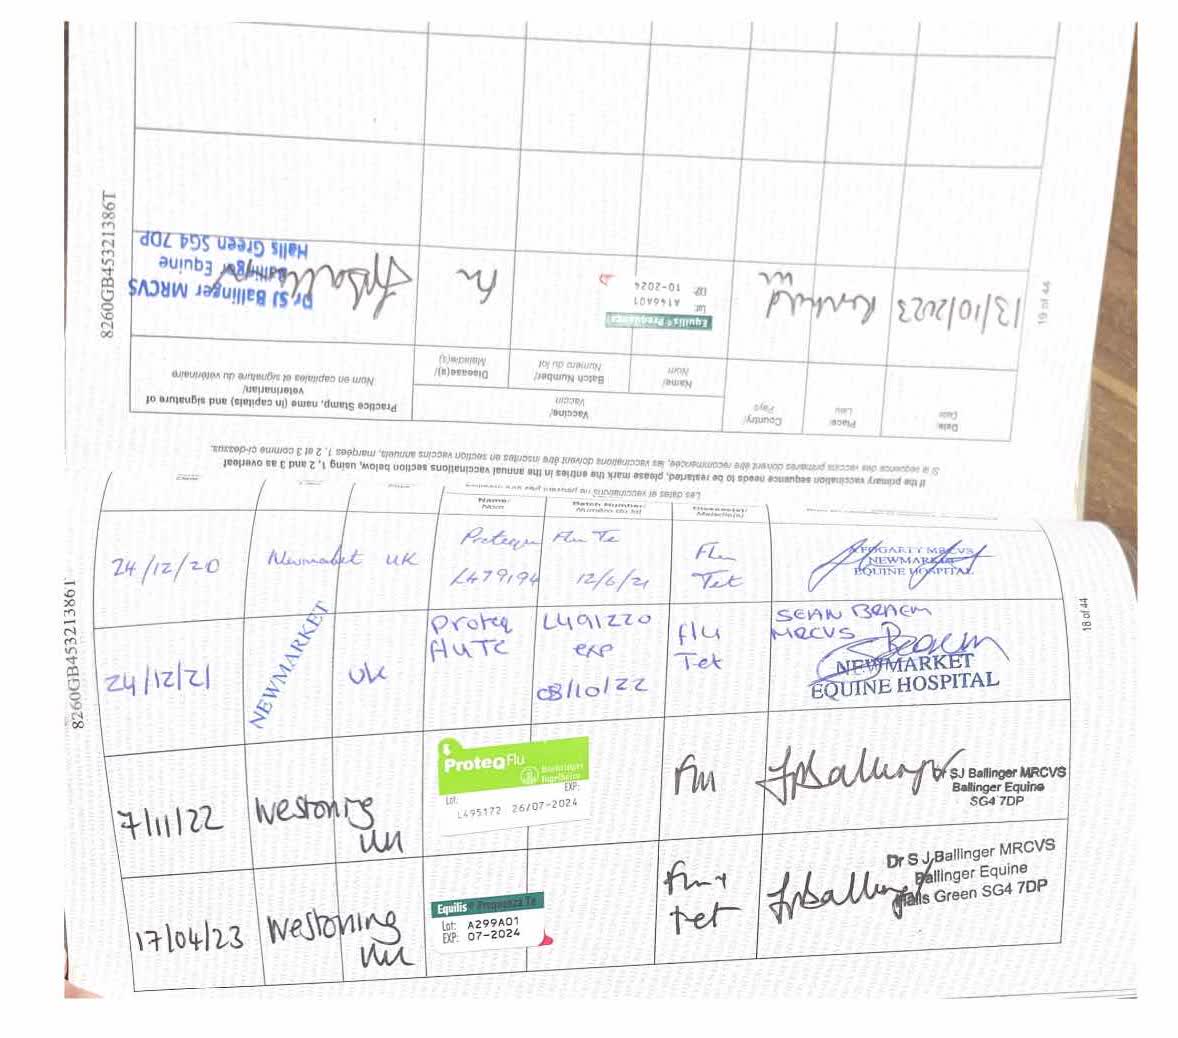 8260GB45321386T
19 of 44
If the primary vaccination sequence needs to be restarted, please mark the entries in the annual vaccinations section below, using 1, 2 and 3 as overleaf
Si la séquence des vaccins primaires doivent être recommencées, les vaccinations doivent être inscrites en section vaccins annuels, marquées 1, 2 et 3 comme ci-dessus.
Date/
Date
Place/
Lieu
Country/
Pays
Vaccine/
Vaccin
Name/
Nom
Batch Number/
Numéro du lot
Disease(s)/
Maladie(s)
Practice Stamp, name (in capitals) and signature of
veterinarian/
Nom en capitales et signature du vétérinaire
13/10/2023
UK
Equilis® Prequenza
Lot: A146A01
EXP: 10-2024
Flu
Dr SJ Ballinger MRCVS
Ballinger Equine
Halls Green SG4 7DP
8260GB45321386T
18 of 44
Name/
Nom
Batch Number/
Numéro du lot
Disease(s)/
Maladie(s)
24/12/20
Newmarket
UK
Proteq Flu Te
L479194
12/6/21
Flu
Tet
FOGARTY MRCVS
NEWMARKET
EQUINE HOSPITAL
24/12/21
NEWMARKET
UK
Proteq
FluTE
L491220
exp
08/10/22
flu
Tet
SEAN
MRCVS
NEWMARKET
EQUINE HOSPITAL
7/11/22
Westoning
UK
ProteqFlu
Boehringer
Ingelheim
Lot:
EXP:
L495172 26/07-2024
Flu
Dr SJ Ballinger MRCVS
Ballinger Equine
SG4 7DP
17/04/23
Westoning
UK
Equilis® Prequenza Te
Lot: A299A01
EXP: 07-2024
Flu +
Tet
Dr S J Ballinger MRCVS
Ballinger Equine
Halls Green SG4 7DP